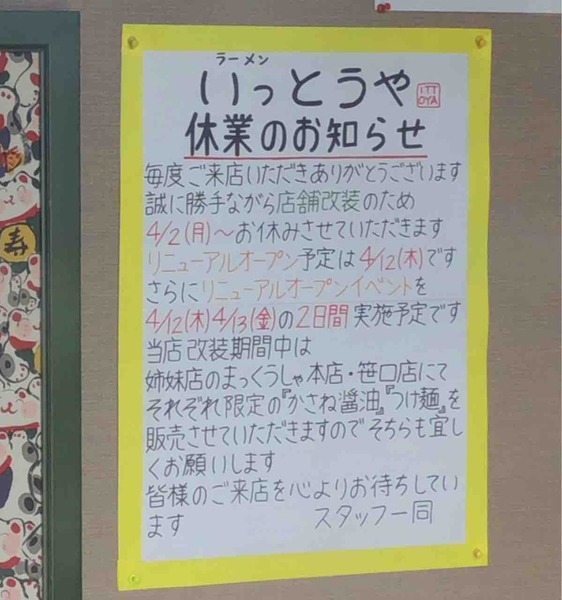 ラーメン
いっとうや
ITT
OYA
休業のお知らせ
毎度ご来店いただきありがとうございます
誠に勝手ながら店舗改装のため
4/2(月)～お休みさせていただきます
リニューアルオープン予定は4/12(木)です
さらにリニューアルオープンイベントを
4/12(木)4/13(金)の2日間実施予定です
当店改装期間中は
姉妹店のまっくうしゃ本店・笹口店にて
それぞれ限定の『かさね醤油』『つけ麺』を
販売させていただきますのでそちらも宜し
くお願いします
皆様のご来店を心よりお待ちしてい
ます スタッフ一同
寿